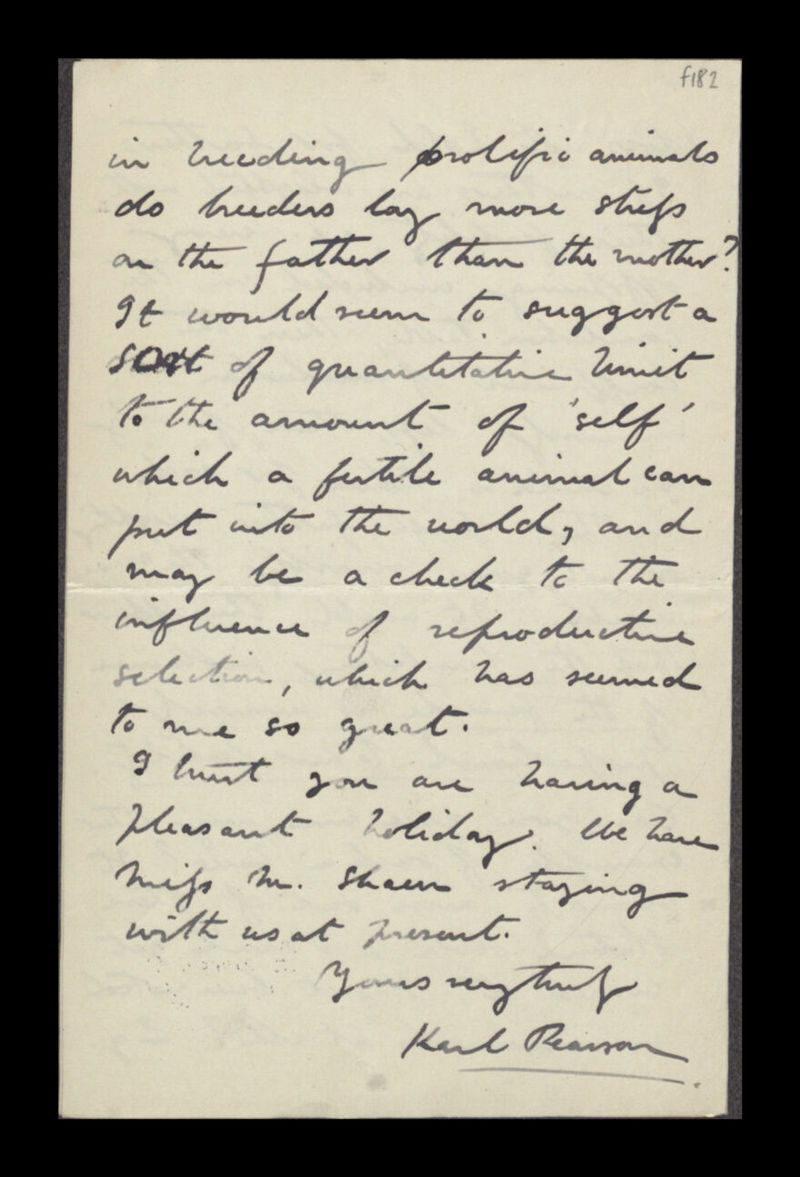 f182
in breeding prolific animals
do breeders lay more stress
on the father than the mother?
It would seem to suggest a
sort of quantitative limit
to the amount of 'self'
which a fertile animal can
put into the world, and
may be a check to the
influence of reproductive
selection, which has seemed
to me so great.
I trust you are having a
pleasant holiday. We have
Miss M. Shaen staying
with us at present.
Yours very truly
Karl Pearson